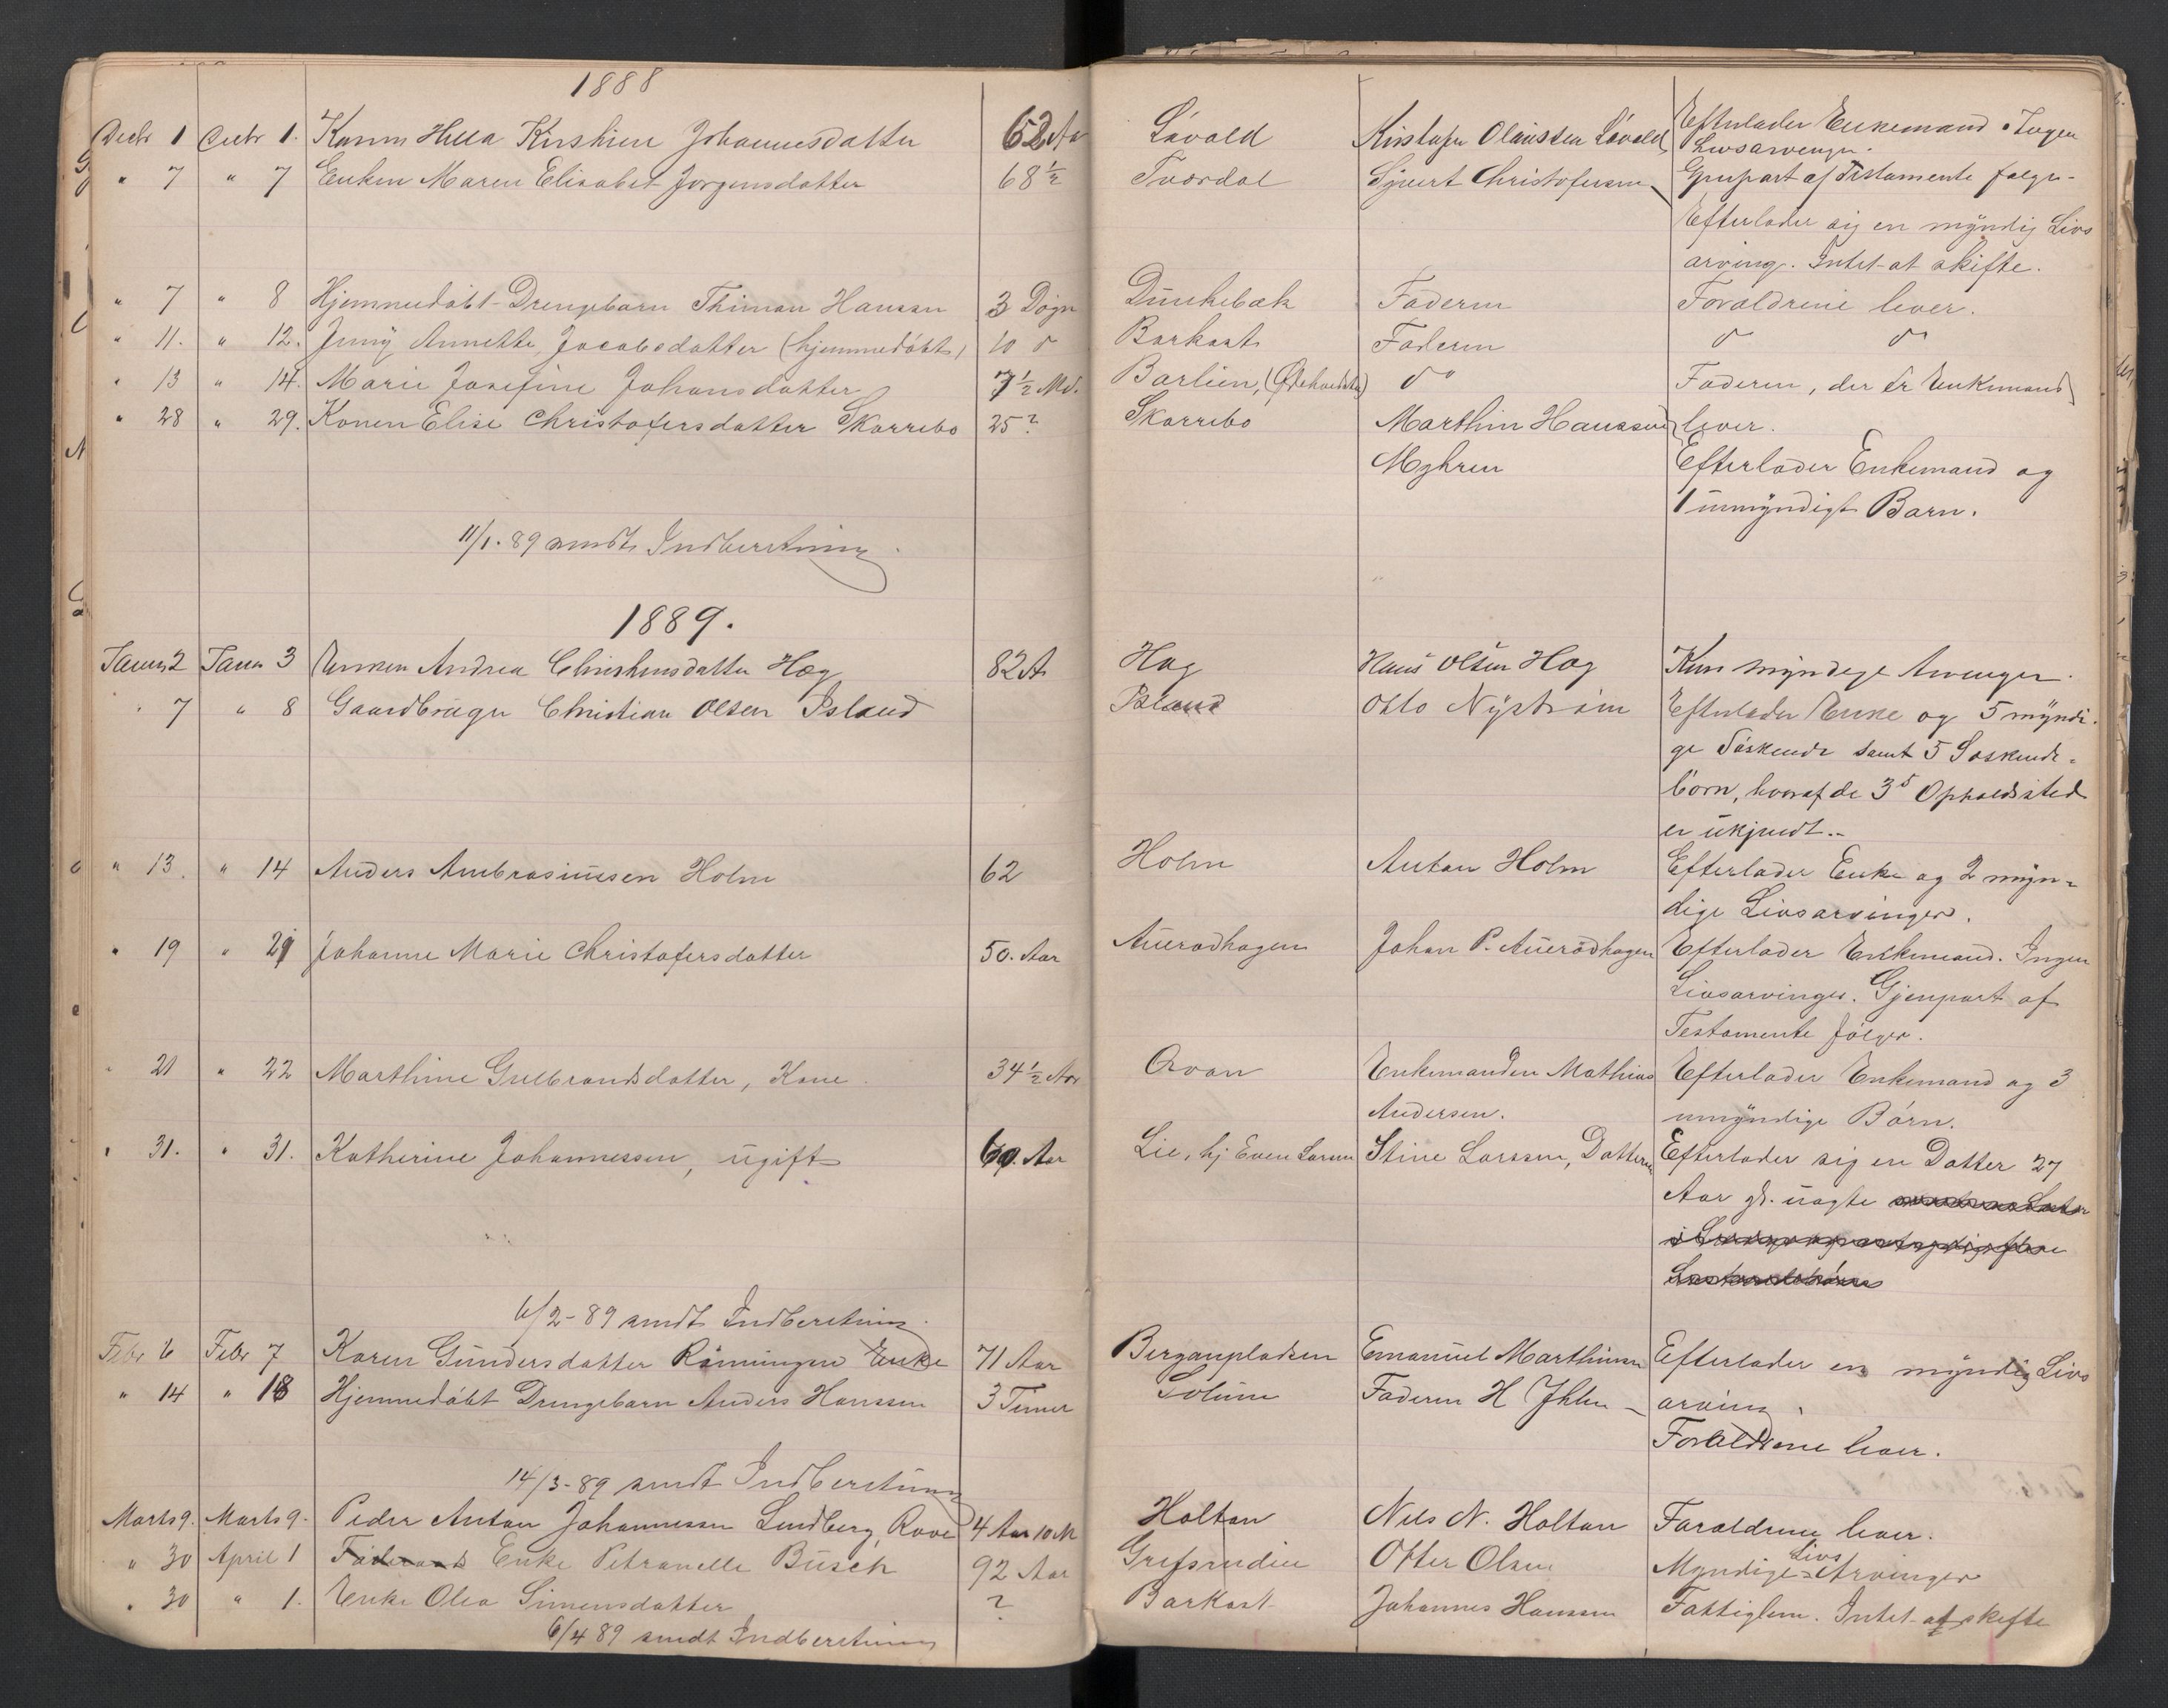 1888
Decbr 1 Decbr 1. Konen Helia Kirstine Johannesdatter 62 Aar Lövold Kristofer Olaussen Lövold Efterlader Enkemand. Ingen
Livsarvinger.
" 7 " 7 Enken Maren Elisabet Jörgensdatter 68 1/2 Tværdal Syvert Christofersen Gjenpart af Testamente følger.
Efterlader sig en myndig Livs
arving. Intet at skifte.
" 7 " 8 Hjemmedöbt Drengebarn Thiman Hansen 3 Døgn Dunkebæk Faderen Forældrene lever.
" 11. " 12. Jenny Annette Jacobsdatter (hjemmedöbt) 10 d Barkast Faderen d d
" 13 " 14. Marie Josefine Johansdatter 7 1/2 Md. Barlien, do Faderen, der er Enkemand
" 28 " 29. Konen Elise Christofersdatter Skorrebo 25? Skorrebo Marthin Hanssen lever.
Myhren Efterlader Enkemand og
1 umyndigt Barn.
11/1. 89 sendt Indberetning.
1889.
Januar 2 Januar 3 Enken Andrea Christensdatter Hæg 82 A Hæg Hans Olsen Hæg Kun myndige Arvinger.
" 7 " 8 Gaardbruger Christian Olsen Island Island Otto Nyström Efterlader Enke og 5 myndi-
ge Söskende samt 5 Söskende-
börn, hvoraf de 3s Opholdssted
er ukjendt.
" 13. " 14 Anders Ambrosiussen Holm 62 Holm Anton Holm Efterlader Enke og 2 myn-
dige Livsarvinger.
" 19 " 21 Johanne Marie Christofersdatter 50. Aar Auerödhagen Johan P. Auerödhagen Efterlader Enkemand. Ingen
Livsarvinger. Gjenpart af
Testamente fölger.
" 21 " 22 Marthine Gulbrandsdatter, Kone 34 1/2 Aar Aaran Enkemanden Mathias Efterlader Enkemand og 3
Andersen. umyndige Börn.
" 31. " 31. Katherine Johannessen, ugift 60. Aar Lie, hj Even Larsen Stine Larssen, Datteren Efterlader sig en Datter 27
Aar gl. uægte
6/2-89 sendt Indberetning.
Febr 6 Febr 7 Karen Gundersdatter Rönningen Enke 71 Aar Berganpladsen Emanuel Marthinsen Efterlader en myndig Livs
" 14 " 18 Hjemmedöbt Drengebarn Anders Hanssen 3 Timer Solum Faderen H Ihlen arving.
Forældrene lever.
14/3-89 sendt Indberetning
Marts 9. Marts 9. Peder Anton Johannessen Lundberg, Rove 4 Aar 10 M Holtan Nils N. Holtan Forældrene lever.
" 30 April 1 Föderaads Enke Petranelle Busch 92 Aar Grefsrudlien Otter Olsen Myndige Livs-Arvinger
" 30 " 1. Enke Olea Simensdatter ? Barkast Johannes Hanssen Fattiglem. Intet at skifte
6/4 89 sendt Indberetning